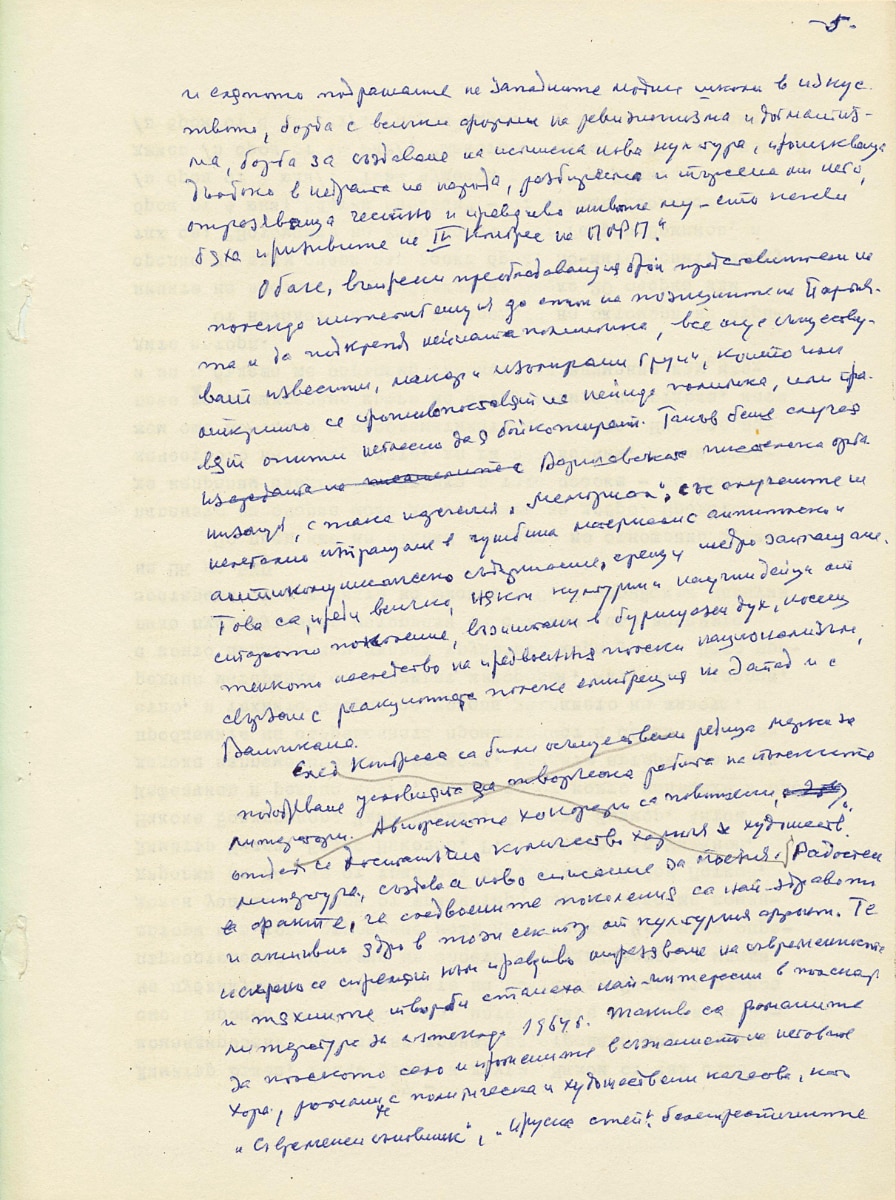 -5-
и сляпото подражание на западните модни школи в изкус-
твото, борба с всички форми на ревизионизма и догматиз-
ма, борба за създаване на истинска нова култура, проникваща
дълбоко в недрата на народа, разбираема и търсена от него,
отразяваща честно и правдиво живота му - ето какви
бяха призивите на IV Конгрес на ПОРП."
Обаче, въпреки преобладаващия брой представители на
полската интелигенция да стои на позициите на Партия-
та и да подкрепя нейната политика, все още съществу-
ват известни, макар и изолирани групи, които или
открито се противопоставят на нейната политика, или пра-
вят опити негласно да я бойкотират. Такъв беше случая
Варшавската писателска орга-
низация, с така наречения "Мемориал", със случаите на
нелегално изпращане в чужбина материали с антиполско и
антикомунистическо съдържание, срещу щедро заплащане.
Това са, преди всичко, някои културни и научни дейци от
старото поколение, възпитани в буржоазен дух, носещ
тежкото наследство на предвоенния полски национализъм,
свързани с реакционната полска емиграция на Запад и с
Ватикана.
След Конгреса са били осъществени редица мерки за
подобряване условията за творческа работа на полските
литератори. Авторските хонорари са повишени,
се достатъчно количество хартия художеств.
литература, създава ново списание за поезия. Радостен
е факта, че следвоените поколения са най-здравото
и активно ядро в този сектор от културния фронт. Те
искрено се стремят към правдиво отразяване на съвремеността
и техните творби станаха най-интересни в полската
литература за изтеклата 1964 г. Такива са романите
за полското село и промените в съзнанието на неговите
хора, романите с политически и художествени качества, като
"Съвременен съновник", "белетристичните